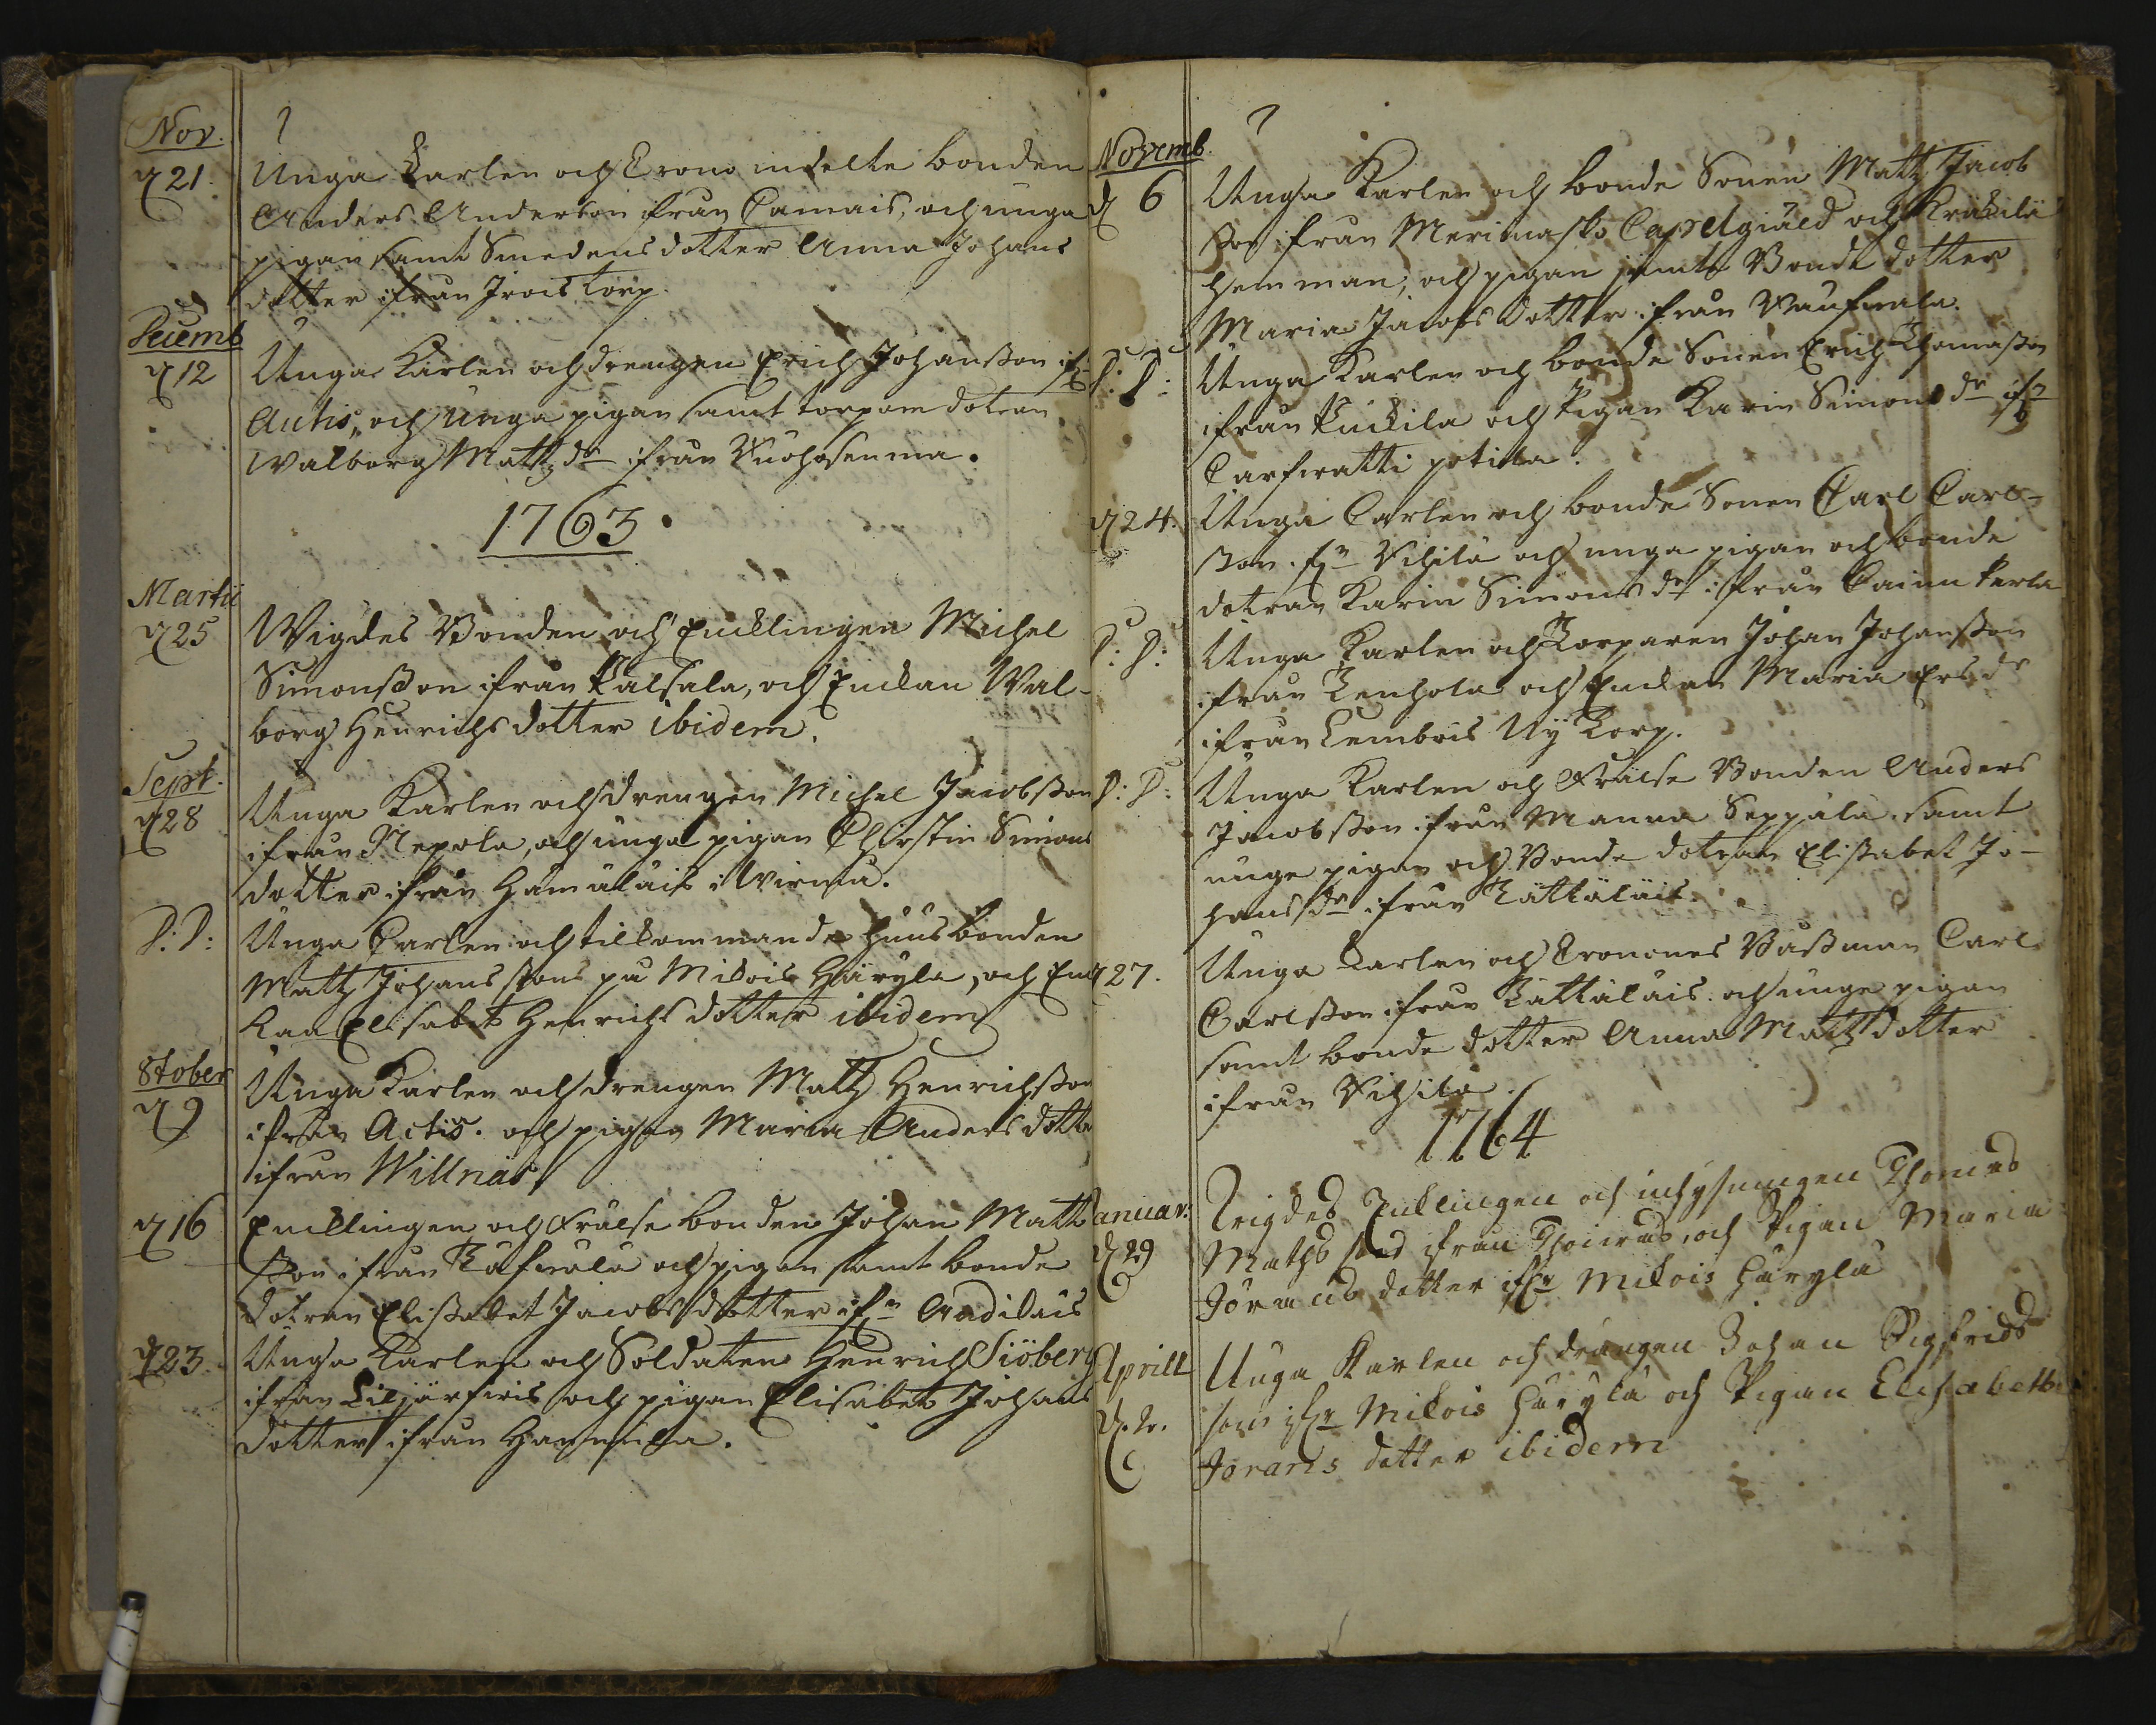 Nov.
d 21. Unga Karlen och Crono indelte bonden
Anders Andersson ifrån Camais, och unga
pigan samt Smedens dotter Anna Johans
dotter ifrån Irois torp.
Decemb
d 12 Unga Karlen och drengen Erich Johansson ifr
Autis, och unga pigan samt torpare dotran
Walborg Mattz dr ifrån
1763.
Martii
d 25 Wigdes Bonden och Encklingen Michel
Simonsson ifrån Kalsala, och Enckan Wal-
borg Henrichs dotter ibidem.
Sept.
d 28 Unga Karlen och drengen Michel Jacobsson
ifrån Nepola, och unga pigan Christin Simons
dotter ifrån Hämäläis i Wirmo.
D: D: Unga Carlen och tillkommande husbonden
Matz Johanssons på Mikois Häyylä, och En
kan Elisabet Henrichs dotter ibidem
8tober
d 9 Unga Karlen och drengen Matz Henrichsson
ifrån Actis. och pigan Maria Anders dotte
ifrån Willnäs
d 16 Encklingen och Frälse bonden Johan Matts
sson ifrån och pigan samt bonde
dotran Elisabet Jacobs dotter ifn
d 23. Unga Karlen och Soldaten Henrich Siöberg
ifrån och pigan Elisabet Johans
dotter ifrån Hannula.
Novemb.
d 6 Unga Karlen och bonde Sonen Matz Jacob
sson ifrån Merimasko Capelgiäld och
hemman, och pigan samt Bonde dotter
Maria Jacobs dotter ifrån
D: D: Unga Karlen och bonde Sonen Erich Thomasson
ifrån Kuckila och Pigan Karin Simons dr ifr
d 24. Unga Carlen och bonde Sonen Carl Carls-
sson. fn Vihilä och unga pigan och bonde
dotran Karin Simons dr ifrån
D: D: Unga Karlen och Torparen Johan Johansson
ifrån och Enckan Maria Ers dr
ifrån Lembois Ny Torp.
D: D: Unga Karlen och Frälse Bonden Anders
Jacobsson ifrån Manna Seppälä samt
unge pigan och Bonde dotran Elisabet Jo-
hans dr ifrån Tattäläis
d 27. Unga Karlen och Cronones Båssman Carl
Carlsson ifrån Tattäläis. och unge pigan
samt bonde dotter Anna Matz dotter
ifrån Vihilä.
1764
Januar:
d 29 Wigdes Encklingen och inhysingen Thomas
Maths son ifrån och Pigan Maria
Jörans dotter ifr Mikois Häyylä
Aprill
d. 2. Unga Karlen och drängen Johan Sigfrids
son ifr Mikois Häyylä och Pigan Elisabeth
Jorans dotter ibidem